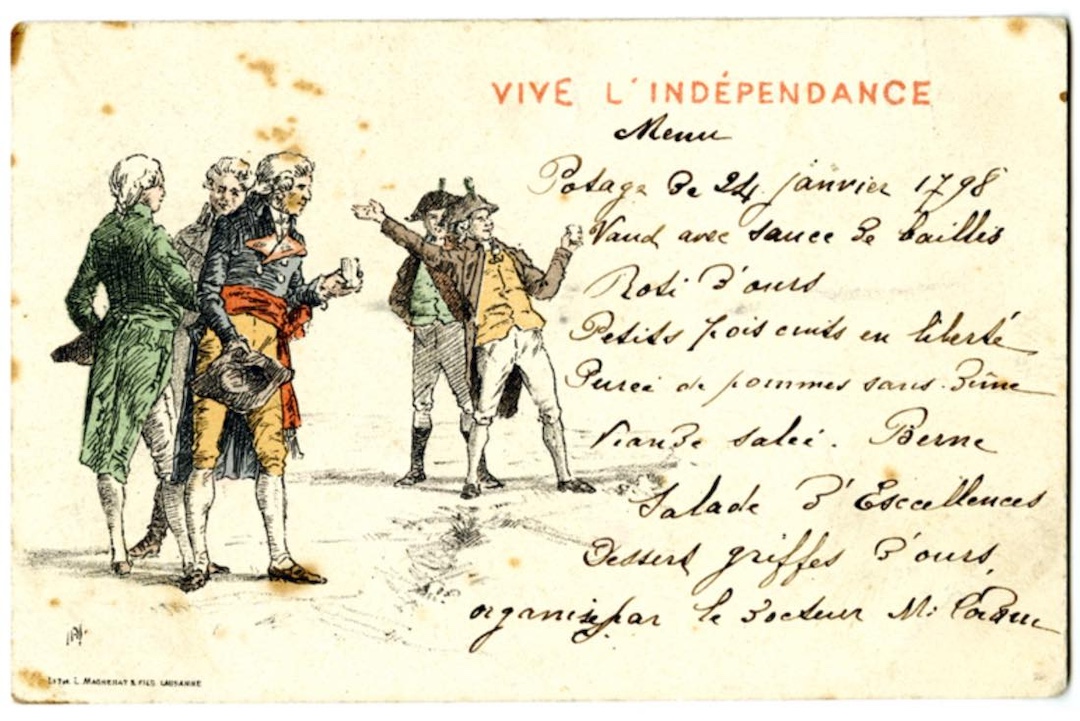 VIVE L'INDÉPENDANCE
Menu
Potage de 24 janvier 1798
Vaud avec sauce de baillis
Roti d'ours
Petits pois cuits en liberté
Pureé de pommes sans dîme
Viande saleé. Berne
Salade d'Exccellences
Dessert griffes d'ours,
organisé par le docteur M.
LITH. L. MAGNENAT & FILS LAUSANNE